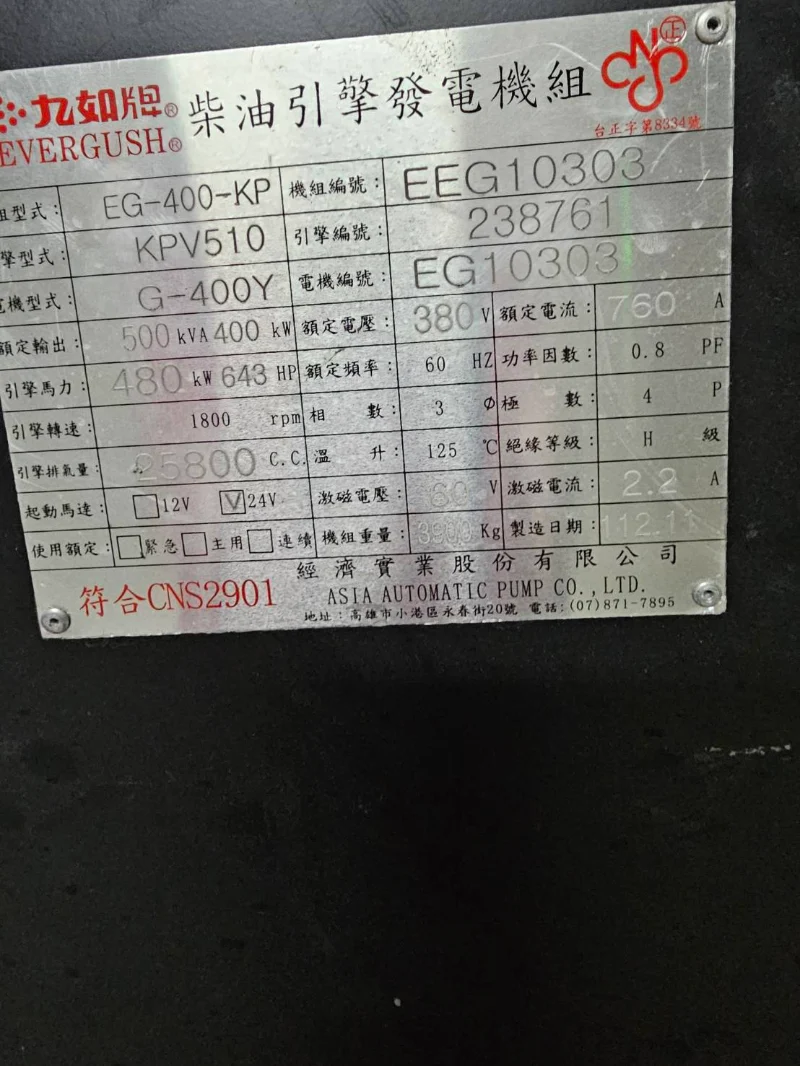 九如牌® 柴油引擎發電機組
EVERGUSH®
正
台正字第8334號
組型式： EG-400-KP 機組編號： EEG10303
擎型式： KPV510 引擎編號： 238761
電機型式： G-400Y 電機編號： EG10303
額定輸出： 500 kVA 400 kW 額定電壓： 380 V 額定電流： 760 A
引擎馬力： 480 kW 643 HP 額定頻率： 60 HZ 功率因數： 0.8 PF
引擎轉速： 1800 rpm 相 數： 3 Ø 極 數： 4 P
引擎排氣量： 25800 C.C. 溫 升： 125 ℃ 絕緣等級： H 級
起動馬達： 12V ☑24V 激磁電壓： V 激磁電流： 2.2 A
使用額定： □緊急 □主用 □連續 機組重量： Kg 製造日期： 112.11
符合CNS2901 經濟實業股份有限公司
ASIA AUTOMATIC PUMP CO.,LTD.
地址：高雄市小港區永春街20號 電話:(07)871-7895